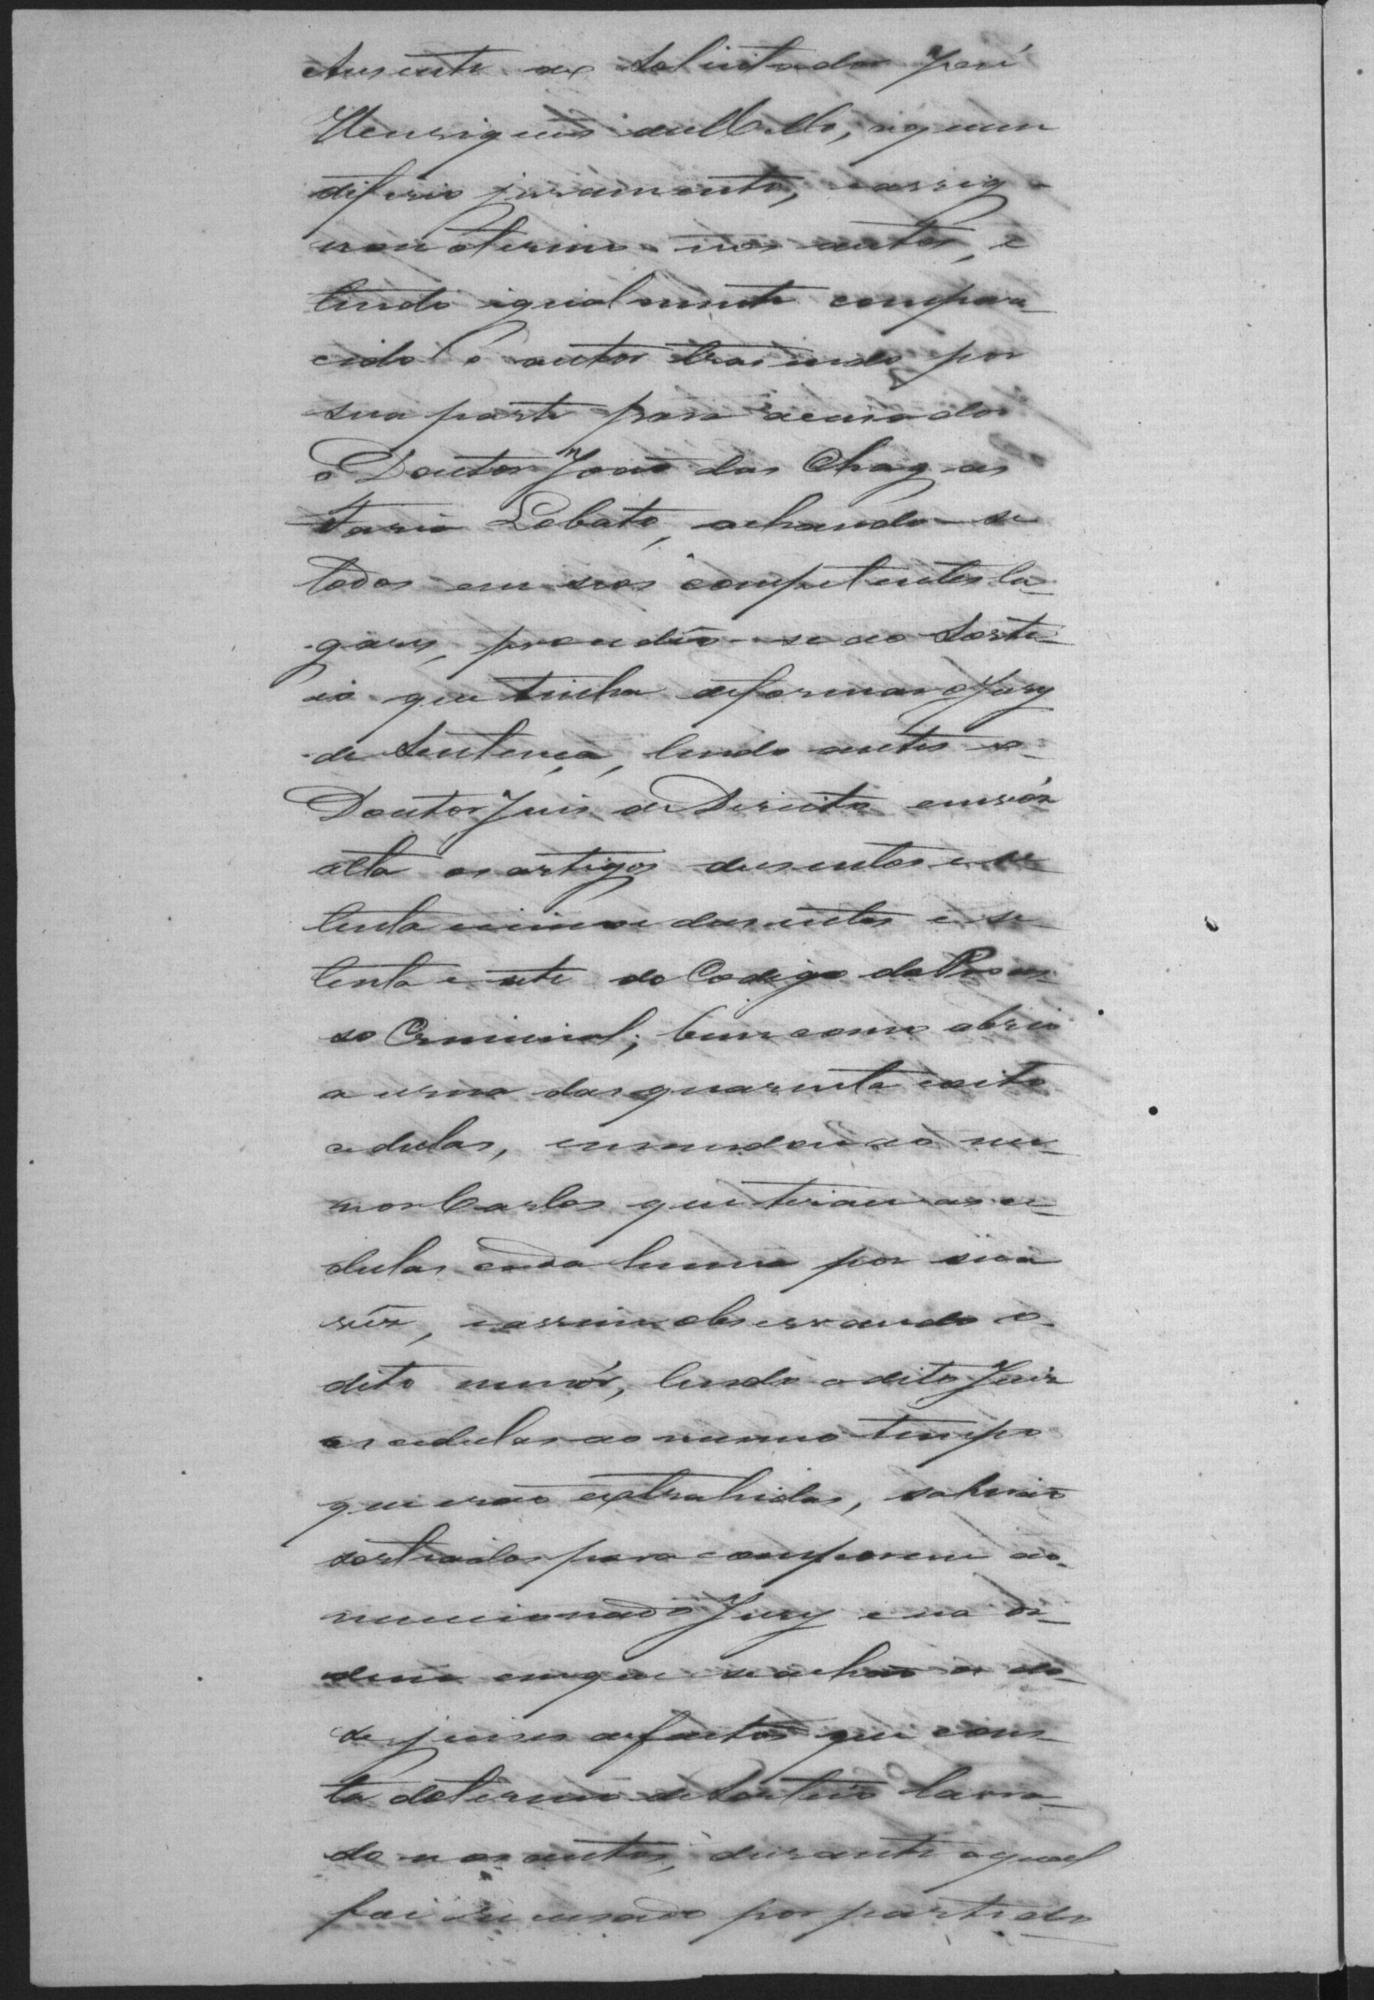 Ausente ao Solicitador José
Henriques de Mello, a quem
diferio juramento, e assig-
nou o termo nos autos, e
tendo igualmente compare-
cido o autor trasendo por
sua parte para acusador
o Doutor João das Chagas
Faria Lobato, achando-se
todos em seos competentes lu-
gares, procedeo-se ao Sorte-
io que tinha de formar o Jury
de Sentença, lendo antes o
Doutor Juis de Direito em vóz
alta os artigos dusentos e se
tenta e cinco e dusentos e se
tenta e sete do Codigo do Proces-
so Criminal; bem como abrio
a urna das quarenta e oito
cedulas, e mandou ao me-
nor Carlos que tirasse as ce-
dulas cada huma por sua
vez, e assim observando o
dito menór, lendo o dito Juiz
as cedulas ao mesmo tempo
que erão extrahidas, sahirão
sorteados para comporem o
mencionado Jury e na or-
dem em que se achão os do-
se juises de factos que cons-
ta do termo de Sorteio lavra-
do nos autos, durante o qual
foi recusado por parte do